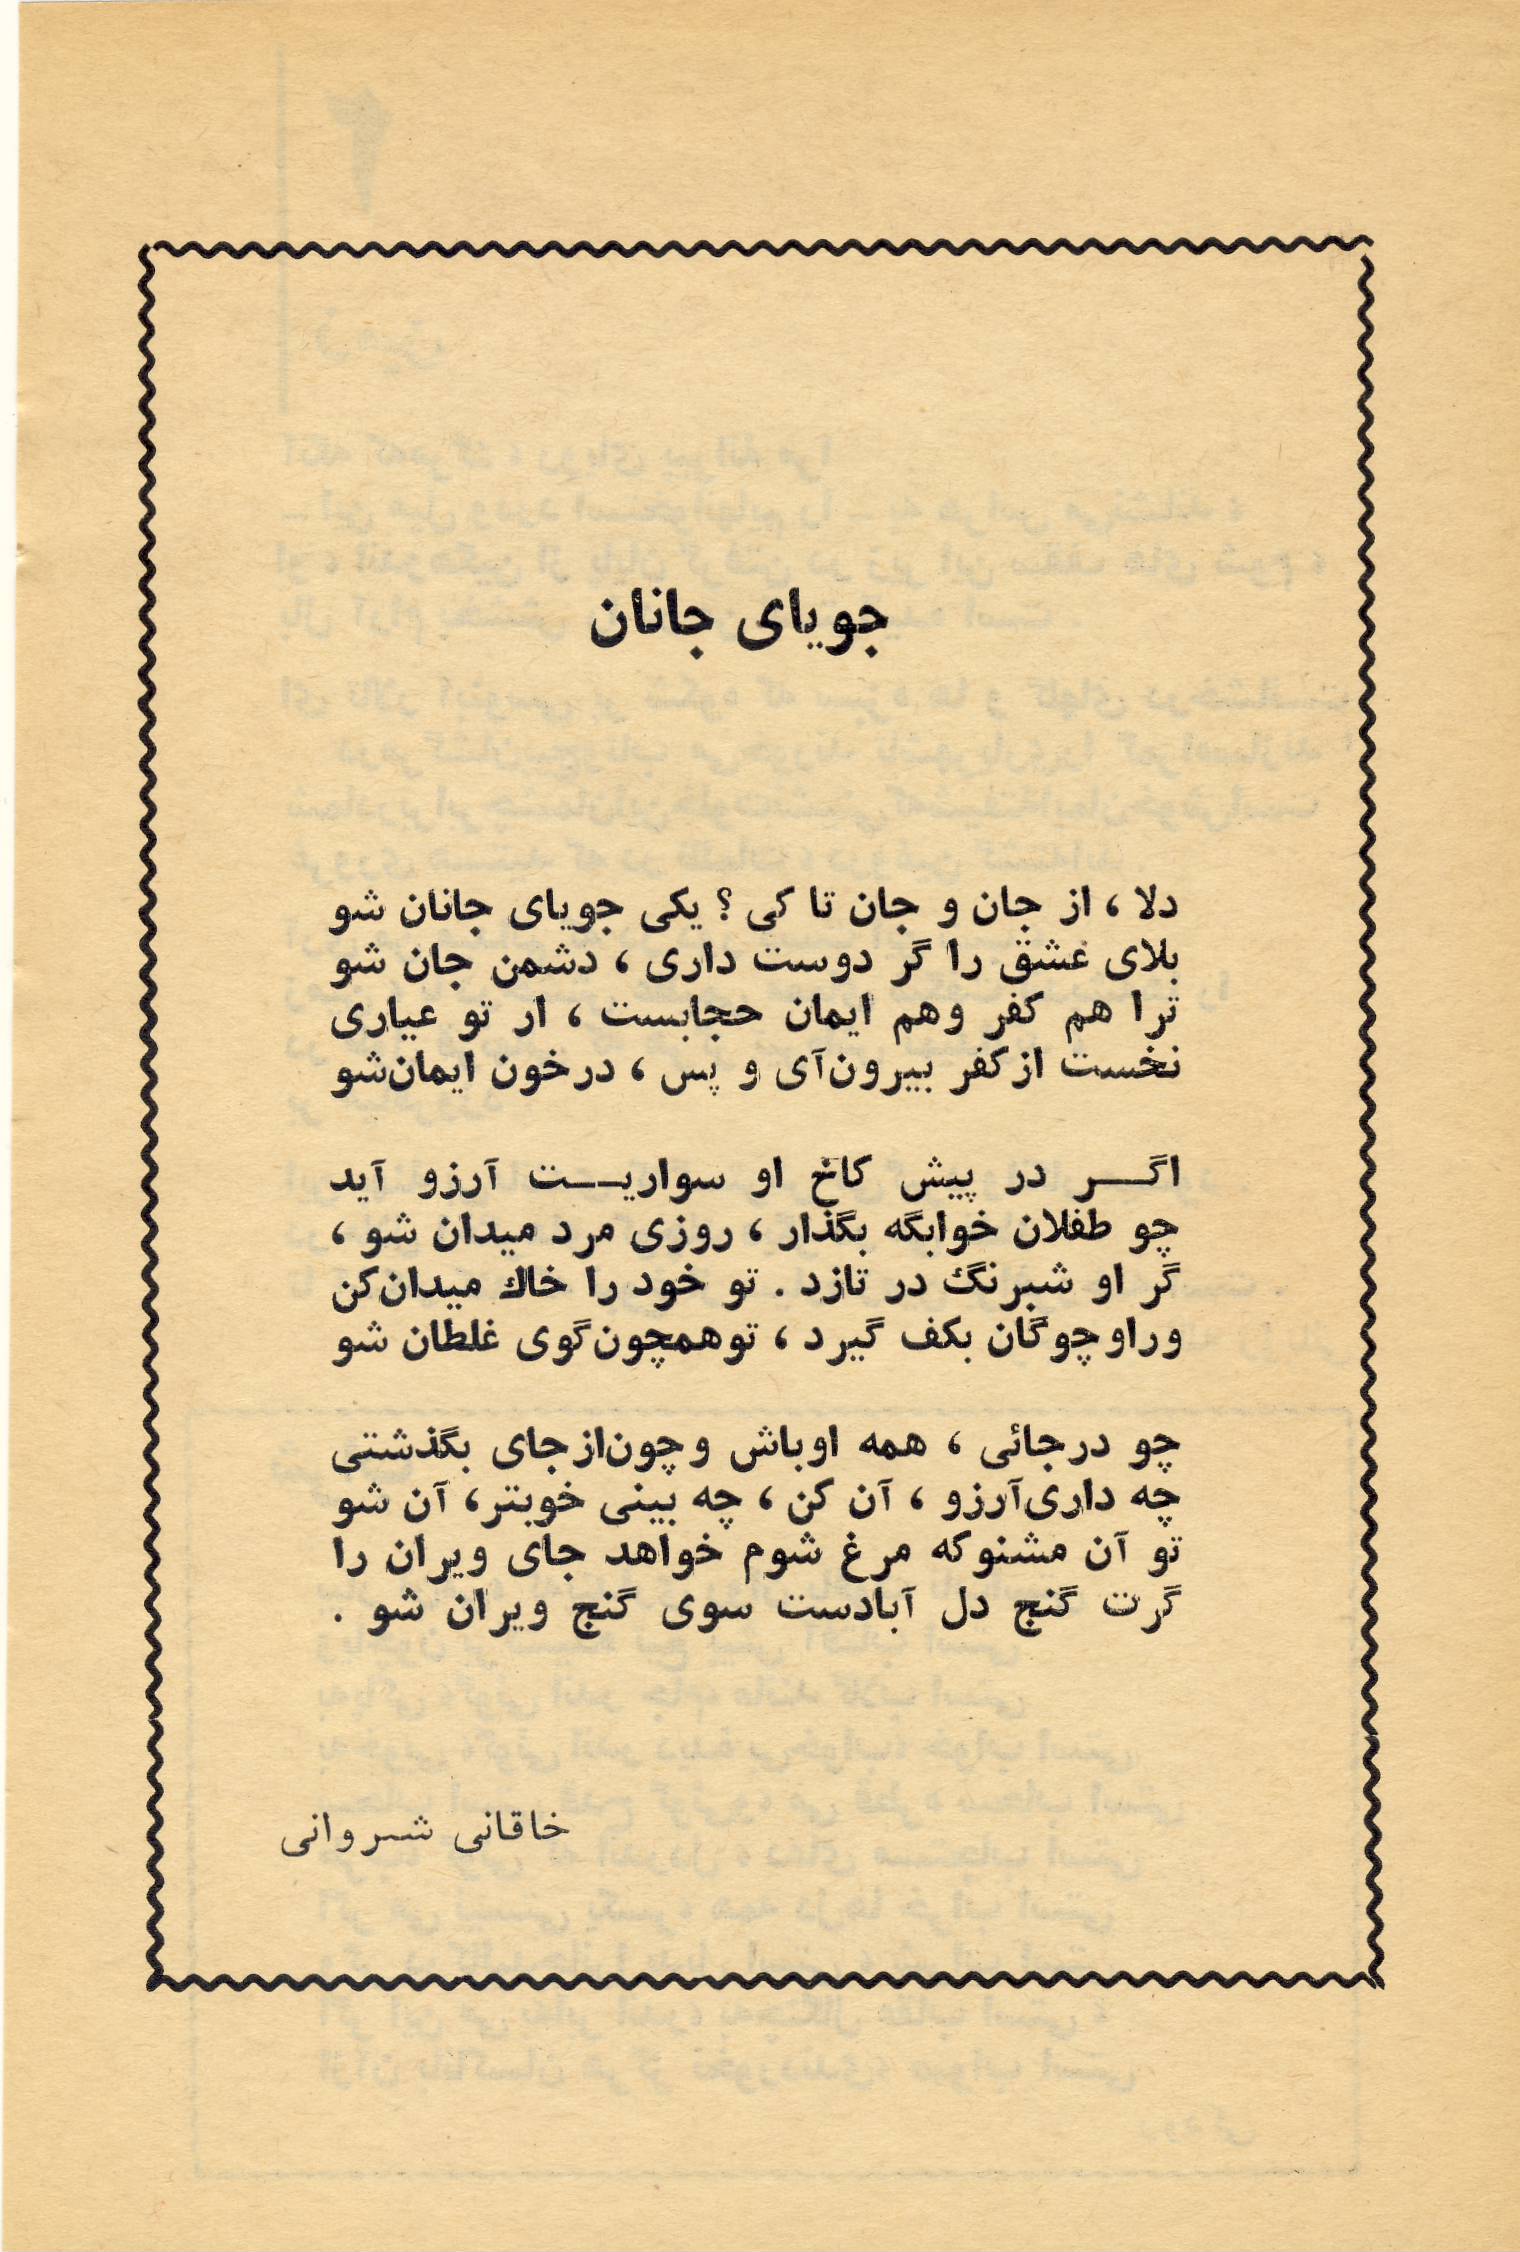 جویای جانان
دلا ، از جان و جان تا کی ؟ یکی جویای جانان شو
بلای عشق را گر دوست داری ، دشمن جان شو
ترا هم کفر وهم ایمان حجابست ، ار تو عیاری
نخست ازکفر بیرون‌آی و پس ، درخون ایمان‌شو
اگر در پیش کاخ او سواریت آرزو آید
چو طفلان خوابگه بگذار ، روزی مرد میدان شو ،
گر او شبرنگ در تازد . تو خود را خاك میدان‌کن
وراوچوگان بکف گیرد ، توهمچون‌گوی غلطان شو
چو درجائی ، همه اوباش وچون‌ازجای بگذشتی
چه داری‌آرزو ، آن کن ، چه بینی خوبتر، آن شو
تو آن مشنوکه مرغ شوم خواهد جای ویران را
گرت گنج دل آبادست سوی گنج ویران شو .
خاقانی شروانی